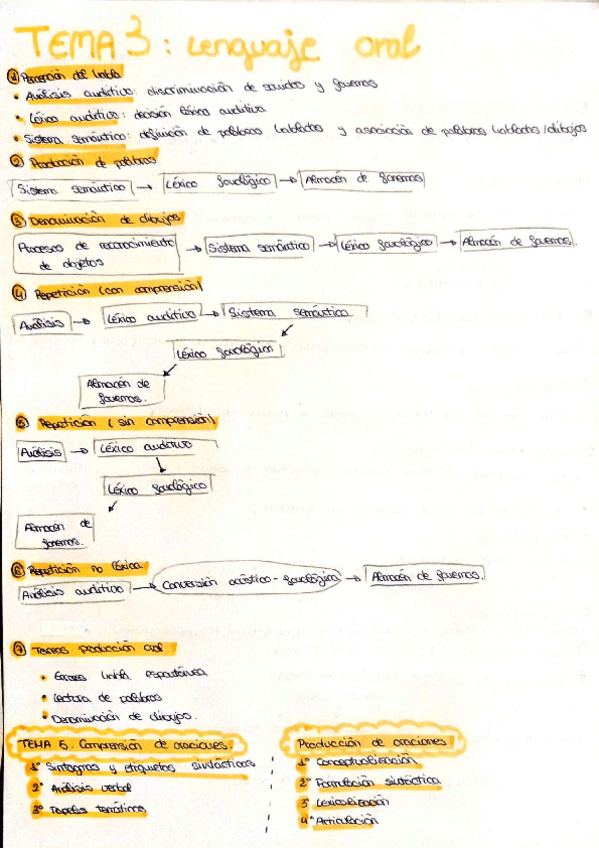 TEMA 3: Lenguaje oral
① Percepción del habla
• Análisis auditivo: discriminación de sonidos y fonemas
• Léxico auditivo: decisión léxica auditiva
• Sistema semántico: definición de palabras habladas y asociación de palabras habladas/dibujos
② Producción de palabras
Sistema semántico → Léxico fonológico → Almacén de fonemas
③ Denominación de dibujos
Procesos de reconocimiento de objetos → Sistema semántico → Léxico fonológico → Almacén de fonemas.
④ Repetición (con comprensión)
Análisis → Léxico auditivo → Sistema semántico
Léxico fonológico
Almacén de
fonemas.
⑤ Repetición (sin comprensión)
Análisis → Léxico auditivo
Léxico fonológico
Almacén de
fonemas.
⑥ Repetición no léxica
Análisis auditivo → Conversión acústico-fonológica → Almacén de fonemas.
⑦ Tareas producción oral
• habla espontánea
• Lectura de palabras
• Denominación de dibujos.
TEMA 5. Comprensión de oraciones.
1º Sintagmas y etiquetas sintácticas
2º Análisis verbal
3º Papeles temáticos.
Producción de oraciones
1º Conceptualización
2º Formulación sintáctica
3º Lexicalización
4º Articulación